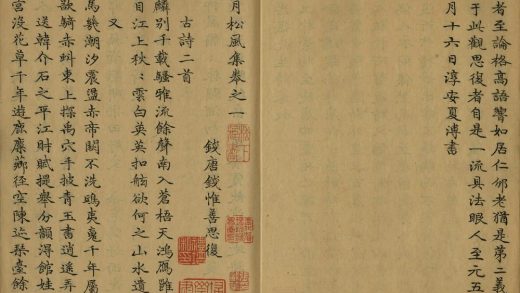 者至論格高語響如居仁邠老猶是第二義
于此觀思復者自是一流具法眼人至元五
月十六日淳安夏溥書
月松風集卷之一
錢唐錢惟善思復
古詩二首
麟別千載騷雅流餘聲南入蒼梧天鴻雁
自江上秋〻雲白英英扣舷欲何之山水遺
又
馬幾潮汐震盪赤帝關不洗鴟夷冤千年屬
欲騎赤虬東上探禹穴手披青玉書逍遙弄
送韓介石之平江時賦提舉分韻得館娃
宮沒花草千年遊鹿麋薌徑空陳迹琹臺餘